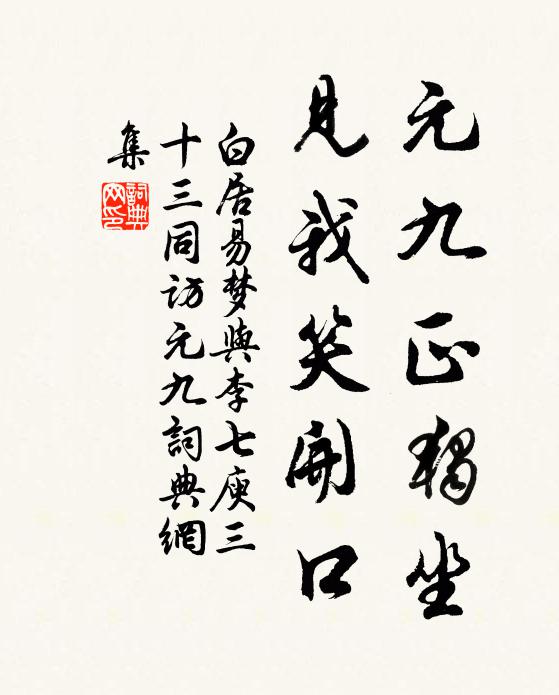 元九正獨坐
見我笑開口
白居易梦與李七庾三
十三同訪元九詞典網
集
詞典
网印